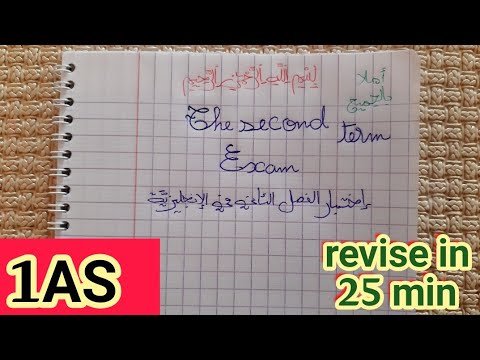 بسم الله الرحمن الرحيم
أهلا
بالجميع
The second term
Exam
إختبار الفصل الثاني في الإنجليزية
1AS
revise in
25 min